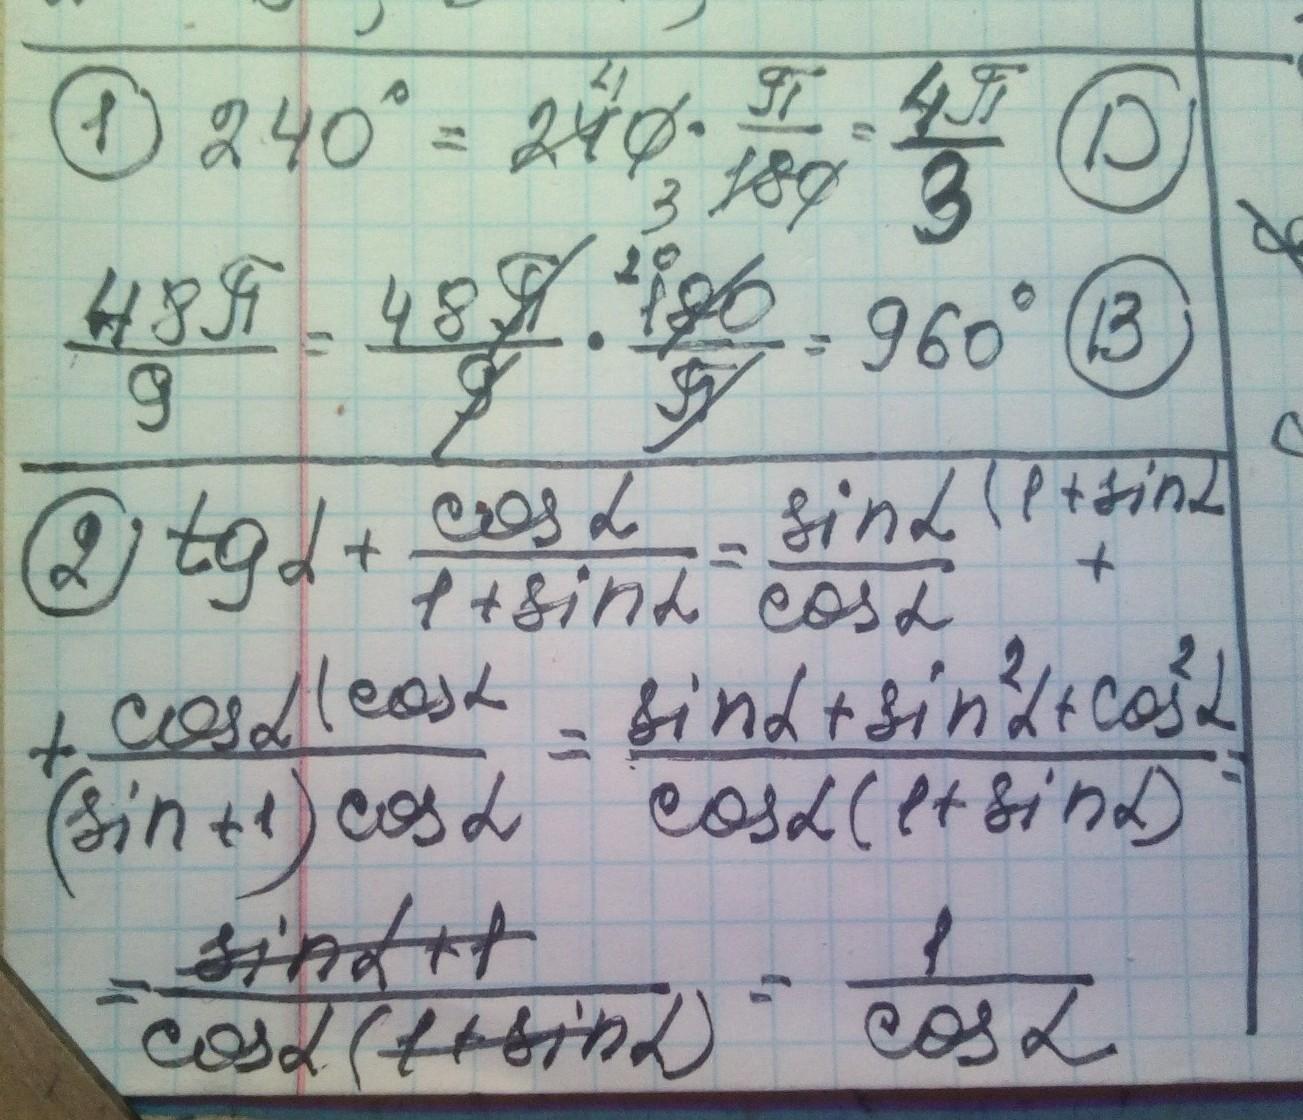 ① 240° = 240 · π/180 = 4π/3 Ⓓ
4
3
48π/9 = 48π/9 · 180/π = 960° Ⓑ
20
② tg α + cos α/1+sin α = sin α/cos α (1+sin α +
+ cos α(cos α/(sin+1) cos α = sin α+sin²α+cos²α/cos α(1+sin α) =
= sin α+1/cos α(1+sin α) = 1/cos α